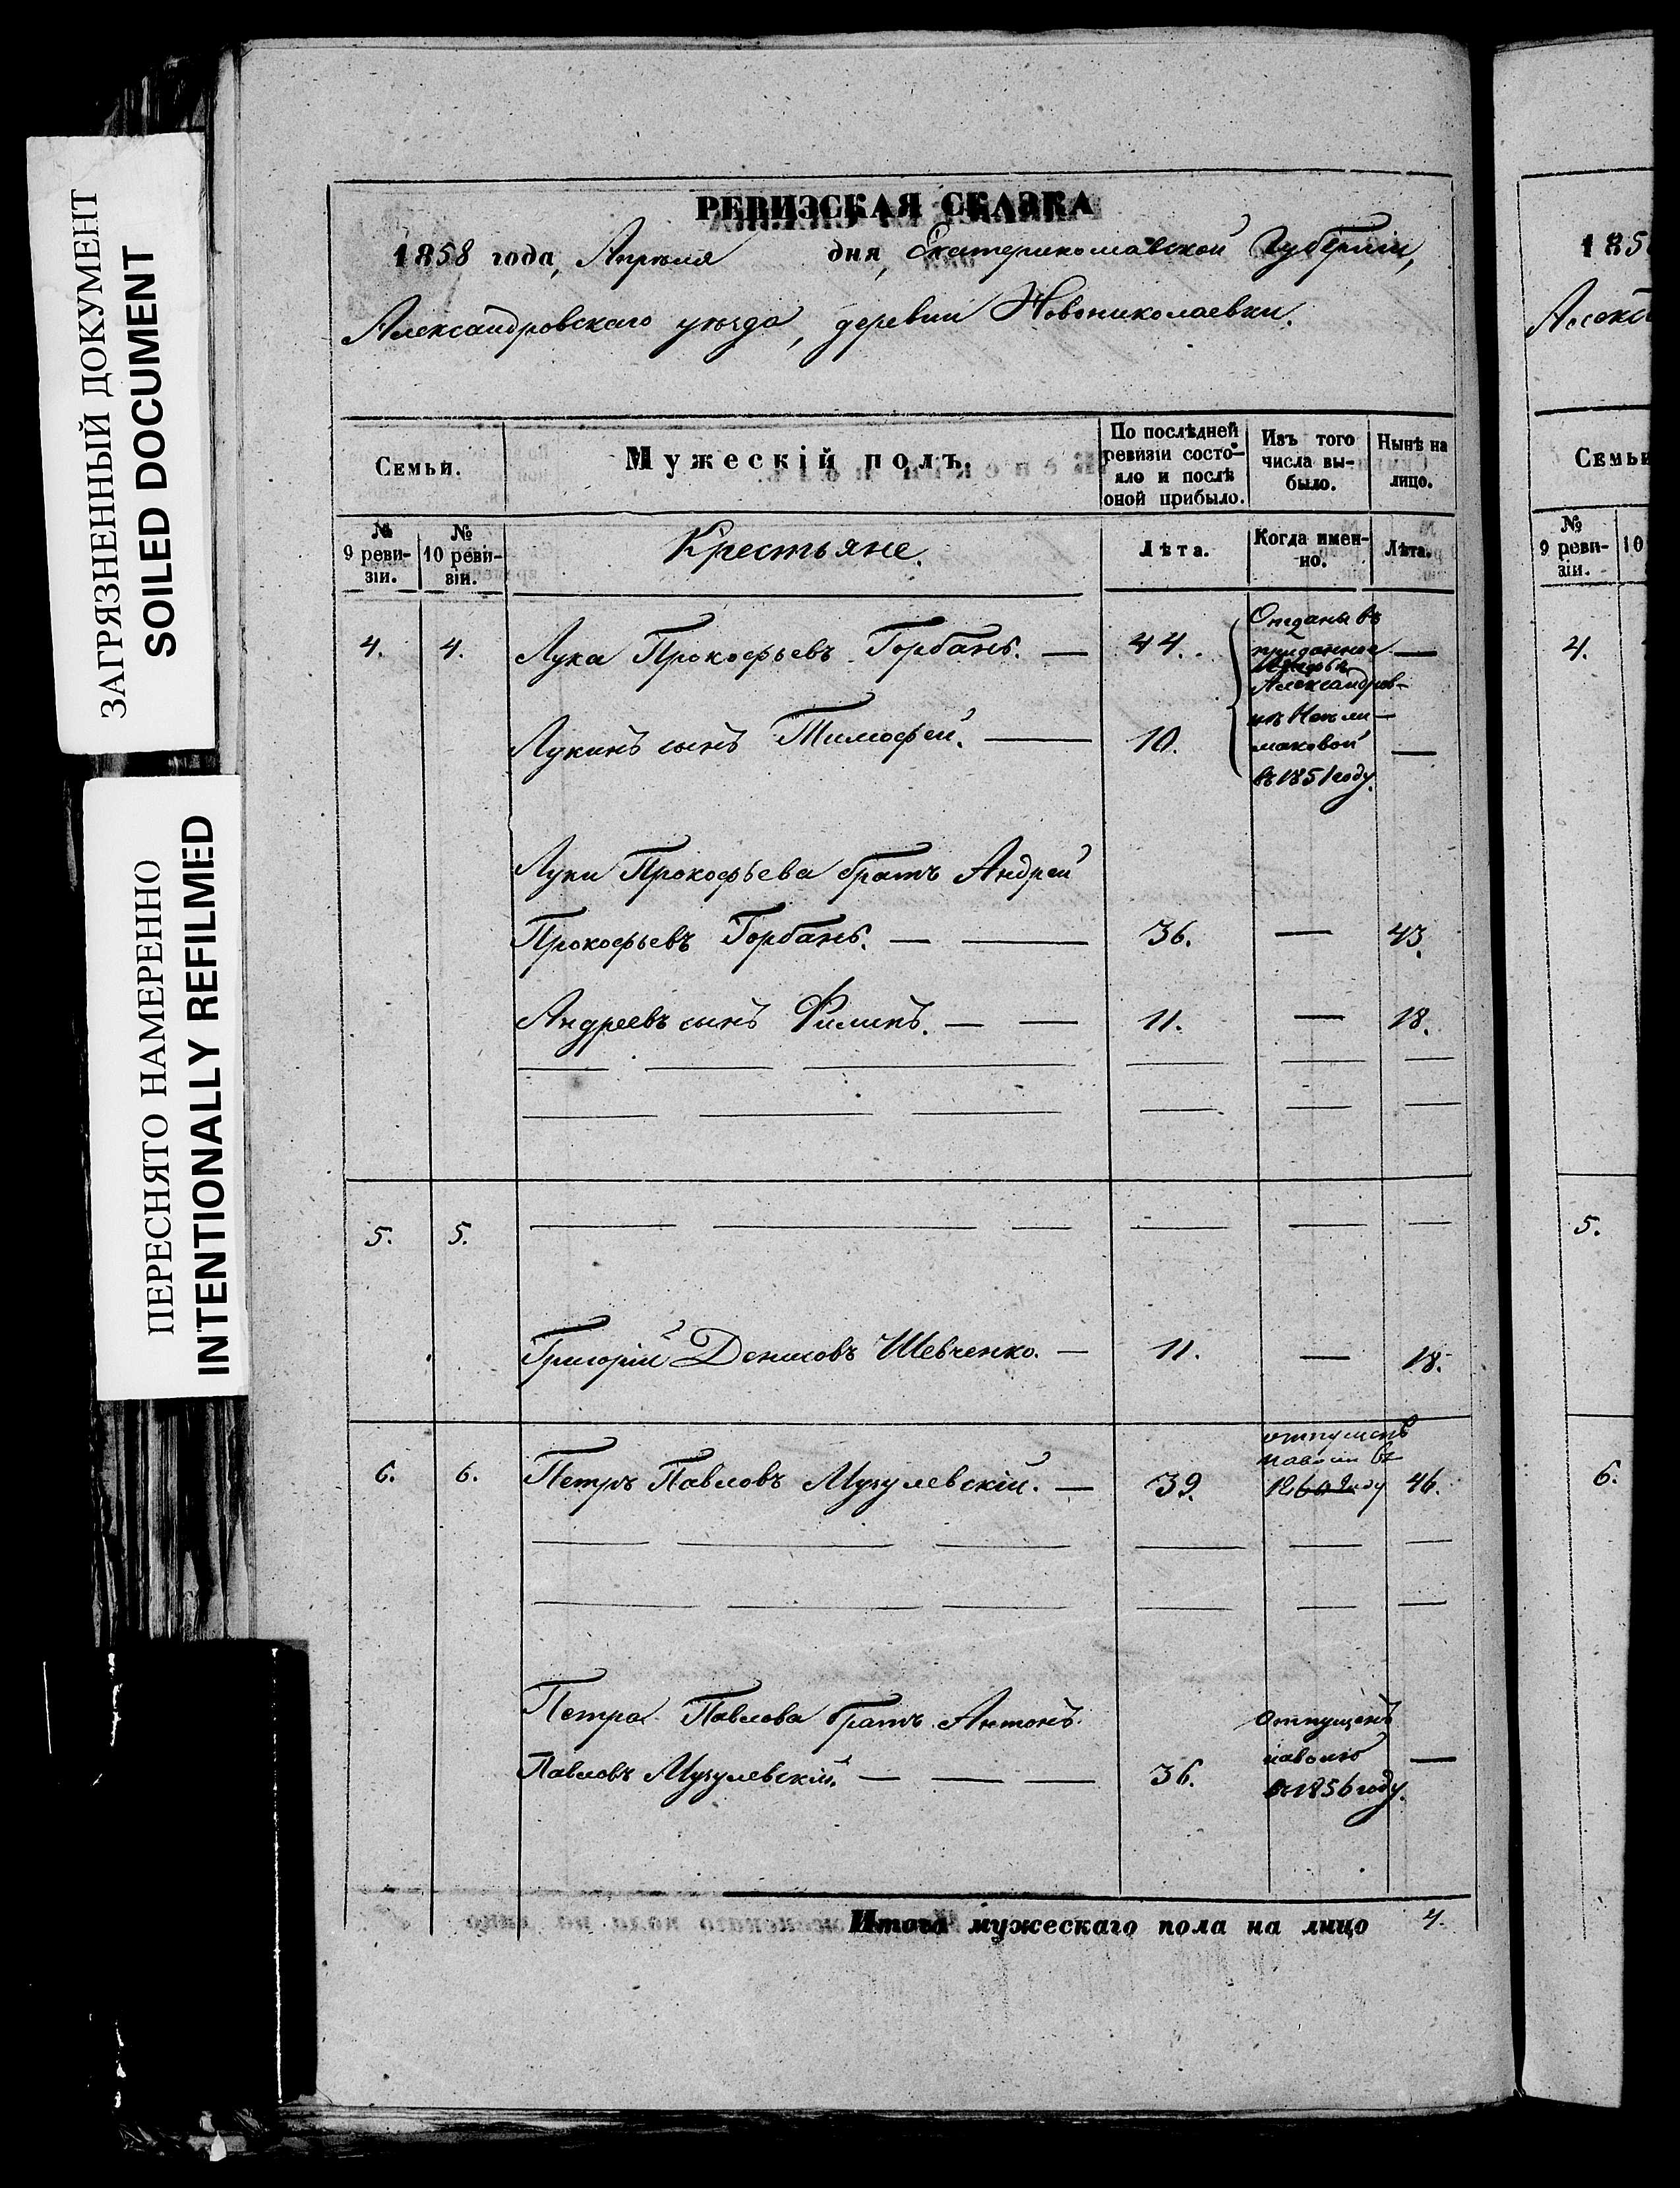 ЗАГРЯЗНЕННЫЙ ДОКУМЕНТ
SOILED DOCUMENT
ПЕРЕСНЯТО НАМЕРЕННО
INTENTIONALLY REFILMED
РЕВИЗСКАЯ СКАЗКА
1858 года, Апреля дня, Екатеринославской Губерніи,
Александровскаго уезда, деревни Новониколаевки.
Семьи.
Мужескій полъ.
По послѣдней ревизіи состо-
яло и послѣ
оной прибыло.
Изъ того
числа вы-
было.
Нынѣ на
лицо.
№
9 реви-
зіи.
№
10 реви-
зіи.
Крестьяне.
Лѣта.
Когда имен-
но.
Лѣта.
4. 4. Лука Прокофьевъ Горбань. — 44. —
Отданы въ
приданное
Александров-
въ 1851 году.
Лукинъ сынъ Тимофей. — 10. —
Луки Прокофьева братъ Андрей
Прокофьевъ Горбань. — — 36. — 43.
Андреевъ сынъ Филипъ. — — 11. — 18.
5. 5.
Григорій Денисовъ Шевченко. — 11. — 18.
отпущенъ
6. 6. Петръ Павловъ Мугулевскій. — 39. году 46.
Петра Павлова братъ Антонъ
Павловъ Мугулевскій. — — — 36. —
Отпущенъ
наволю
въ 1856 году.
Итога мужескаго пола на лицо 4.
185
Семьи
№
9 реви-
зіи.
10
4.
5.
6.